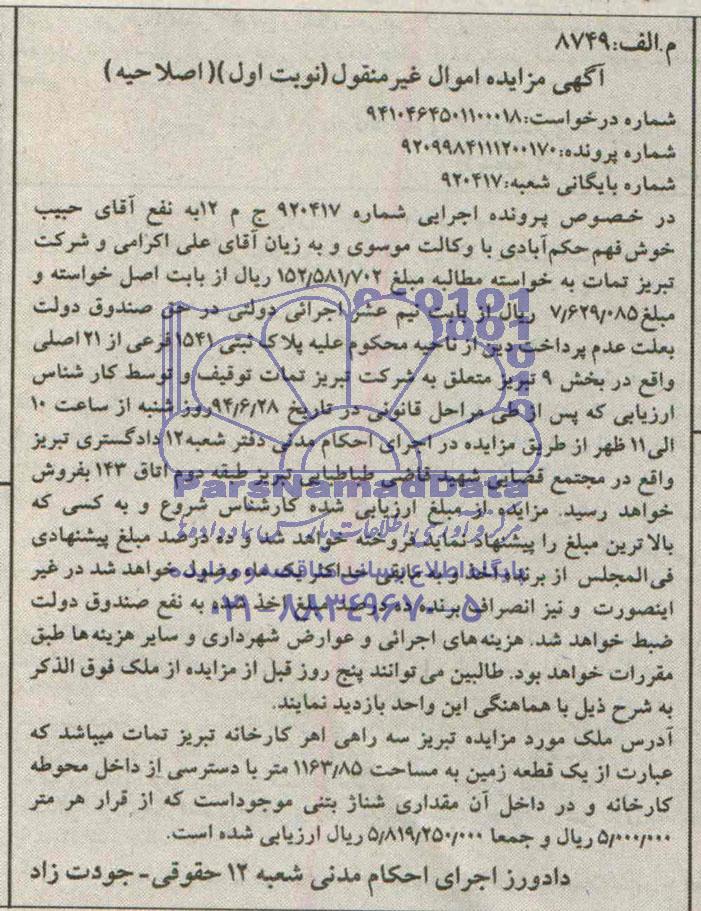 م.الف:۸۷۴۹
آگهی مزایده اموال غیرمنقول(نوبت اول)(اصلاحیه)
شماره درخواست:۹۴۱۰۴۶۴۵۰۱۱۰۰۰۱۸
شماره پرونده:۹۲۰۹۹۸۴۱۱۱۲۰۰۱۷۰
شماره بایگانی شعبه:۹۲۰۴۱۷
در خصوص پرونده اجرایی شماره ۹۲۰۴۱۷ ج م ۱۲به نفع آقای حبیب
خوش فهم حکم‌آبادی با وکالت موسوی و به زیان آقای علی اکرامی و شرکت
تبریز تمات به خواسته مطالبه مبلغ ۱۵۲٫۵۸۱٫۷۰۲ ریال از بابت اصل خواسته و
مبلغ۷٫۶۲۹٫۰۸۵ ریال از بابت نیم عشر اجرائی دولتی در حق صندوق دولت
بعلت عدم پرداخت دین از ناحیه محکوم علیه پلاک ثبتی ۱۵۴۱ فرعی از ۲۱ اصلی
واقع در بخش ۹ تبریز متعلق به شرکت تبریز تمات توقیف و توسط کار شناس
ارزیابی که پس از طی مراحل قانونی در تاریخ ۹۴٫۶٫۲۸روز شنبه از ساعت ۱۰
الی۱۱ ظهر از طریق مزایده در اجرای احکام مدنی دفتر شعبه۱۲ دادگستری تبریز
واقع در مجتمع قضایی شهید قاضی طباطبایی تبریز طبقه دوم اتاق ۱۴۳ بفروش
ParsNamadData
خواهد رسید. مزایده از مبلغ ارزیابی شده کارشناس شروع و به کسی که
بالاترین مبلغ را پیشنهاد نماید فروخته خواهد شد و ده درصد مبلغ پیشنهادی
فی‌المجلس از برنده اخذ و مابقی حداکثر یک ماه وصول خواهد شد در غیر
اینصورت و نیز انصراف برنده ده درصد مبلغ اخذ شده به نفع صندوق دولت
۰۲۱-۸۸۳۴۹۶۷۰-۵
ضبط خواهد شد. هزینه‌های اجرائی و عوارض شهرداری و سایر هزینه‌ها طبق
مقررات خواهد بود. طالبین می‌توانند پنج روز قبل از مزایده از ملک فوق الذکر
به شرح ذیل با هماهنگی این واحد بازدید نمایند.
آدرس ملک مورد مزایده تبریز سه راهی اهر کارخانه تبریز تمات میباشد که
عبارت از یک قطعه زمین به مساحت ۱۱۶۳٫۸۵ متر با دسترسی از داخل محوطه
کارخانه و در داخل آن مقداری شناژ بتنی موجوداست که از قرار هر متر
۵٫۰۰۰٫۰۰۰ ریال و جمعا ۵٫۸۱۹٫۲۵۰٫۰۰۰ ریال ارزیابی شده است.
دادورز اجرای احکام مدنی شعبه ۱۲ حقوقی- جودت زاد